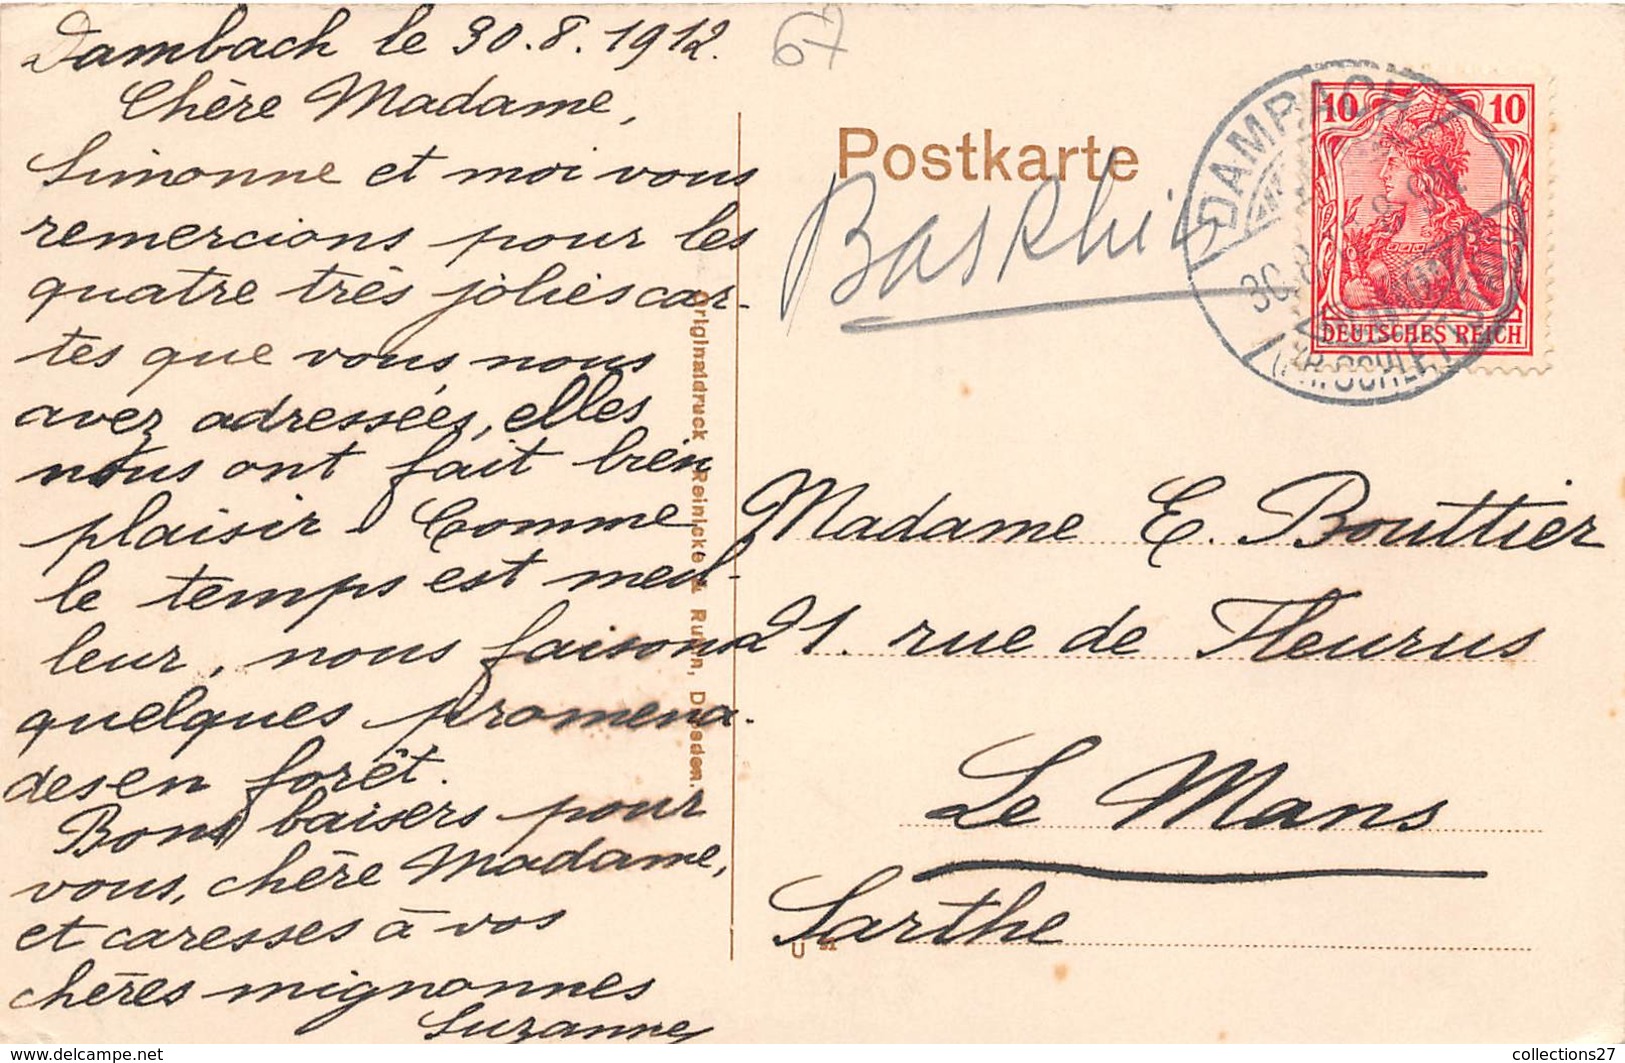 Dambach le 30.8.1912.
Chère Madame,
Simonne et moi vous
remercions pour les
quatre très jolies car-
tes que vous nous
avez adressées, elles
nous ont fait bien
plaisir. Comme
le temps est meil-
leur, nous faisons
quelques promena-
des en forêt.
Bons baisers pour
vous, chère Madame,
et caresses à vos
chères mignonnes
Suzanne
67
Originaldruck Reinicke & Rubin, Dresden.
Postkarte
10 10
DEUTSCHES REICH
DAMBACH
30.8
Madame E. Bouttier
21. rue de Fleurus
Le Mans
Sarthe
U
collections27
www.delcampe.net